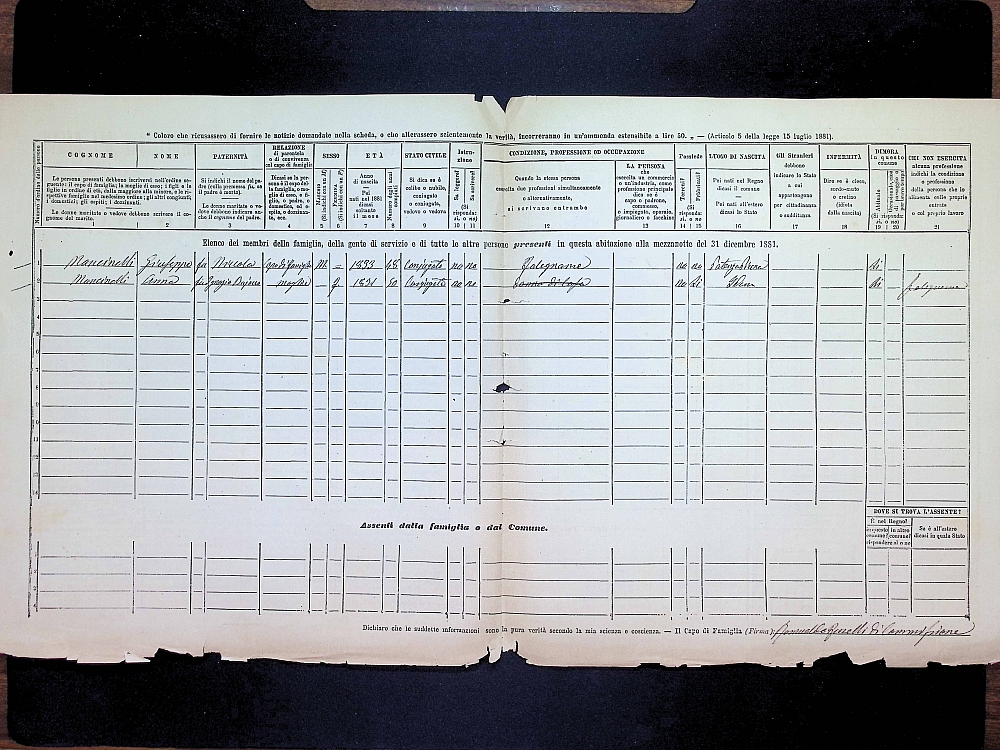 " Coloro che ricusassero di fornire le notizie domandate nella scheda, o che alterassero scientemente la verità, incorreranno in un'ammenda estensibile a lire 50. „ — (Articolo 5 della legge 15 luglio 1881).
COGNOME
NOME
PATERNITÀ
RELAZIONE di parentela o di convivenza col capo di famiglia
SESSO
ETÀ
STATO CIVILE
Istruzione
CONDIZIONE, PROFESSIONE OD OCCUPAZIONE
Possiede
LUOGO DI NASCITA
Gli Stranieri
INFERMITÀ
DIMORA in questo comune
CHI NON ESERCITA
Le persone presenti debbono inscriversi nell'ordine seguente: il capo di famiglia; la moglie di esso; i figli e le figlie in ordine di età, dalla maggiore alla minore, e le rispettive famiglie nel medesimo ordine; gli altri congiunti; i domestici; gli ospiti; i dozzinanti.
Le donne maritate o vedove debbono scrivere il cognome del marito.
Si indichi il nome del padre (colla premessa fu, se il padre è morto).
Le donne maritate o vedove debbono indicare anche il cognome del padre.
Dicasi se la persona è il capo della famiglia, o moglie di esso, o figlio, o padre, o domestico, od ospite, o dozzinante, ecc.
Maschio (Si indichi con un M)
Femmina (Si indichi con un F)
Anno di nascita
Pei nati nel 1881 dicasi soltanto il mese
Numero degli anni compiuti
Si dica se è celibe o nubile, coniugato o coniugata, vedovo o vedova
Sa leggere?
Sa scrivere?
(Si risponda: sì, o no)
Quando la stessa persona esercita due professioni simultaneamente o alternativamente, si scrivano entrambe
LA PERSONA che esercita un commercio o un'industria, come professione principale dica se è capo o padrone, commesso, o impiegato, operaio, giornaliero o facchino
Terreni?
Fabbricati?
(Si risponda: sì, o no)
Pei nati nel Regno dicasi il comune
Pei nati all'estero dicasi lo Stato
debbono indicare lo Stato a cui appartengono per cittadinanza o sudditanza
Dica se è cieco, sordo-muto o cretino (idiota dalla nascita)
Abituale
alcuna professione indichi la condizione o professione della persona che lo alimenta colle proprie entrate o col proprio lavoro
1 2 3 4 5 6 7 8 9 10 11 12 13 14 15 16 17 18 19 20 21
Elenco dei membri della famiglia, della gente di servizio e di tutte le altre persone presenti in questa abitazione alla mezzanotte del 31 dicembre 1881.
1 Mancinelli Giuseppe fu Nicola Capo di famiglia M. – 1833 48 Conjugato no no Falegname no no si —
2 Mancinelli Anna fu moglie – F. 1831 50 Conjugata no no donna di Casa no si Roma si — falegname
DOVE SI TROVA L'ASSENTE?
È nel Regno?
Se è all'estero dicasi in quale Stato
Assenti dalla famiglia o dal Comune.
Dichiaro che le suddette informazioni sono la pura verità secondo la mia scienza e coscienza. — Il Capo di Famiglia (Firma) di Commissione